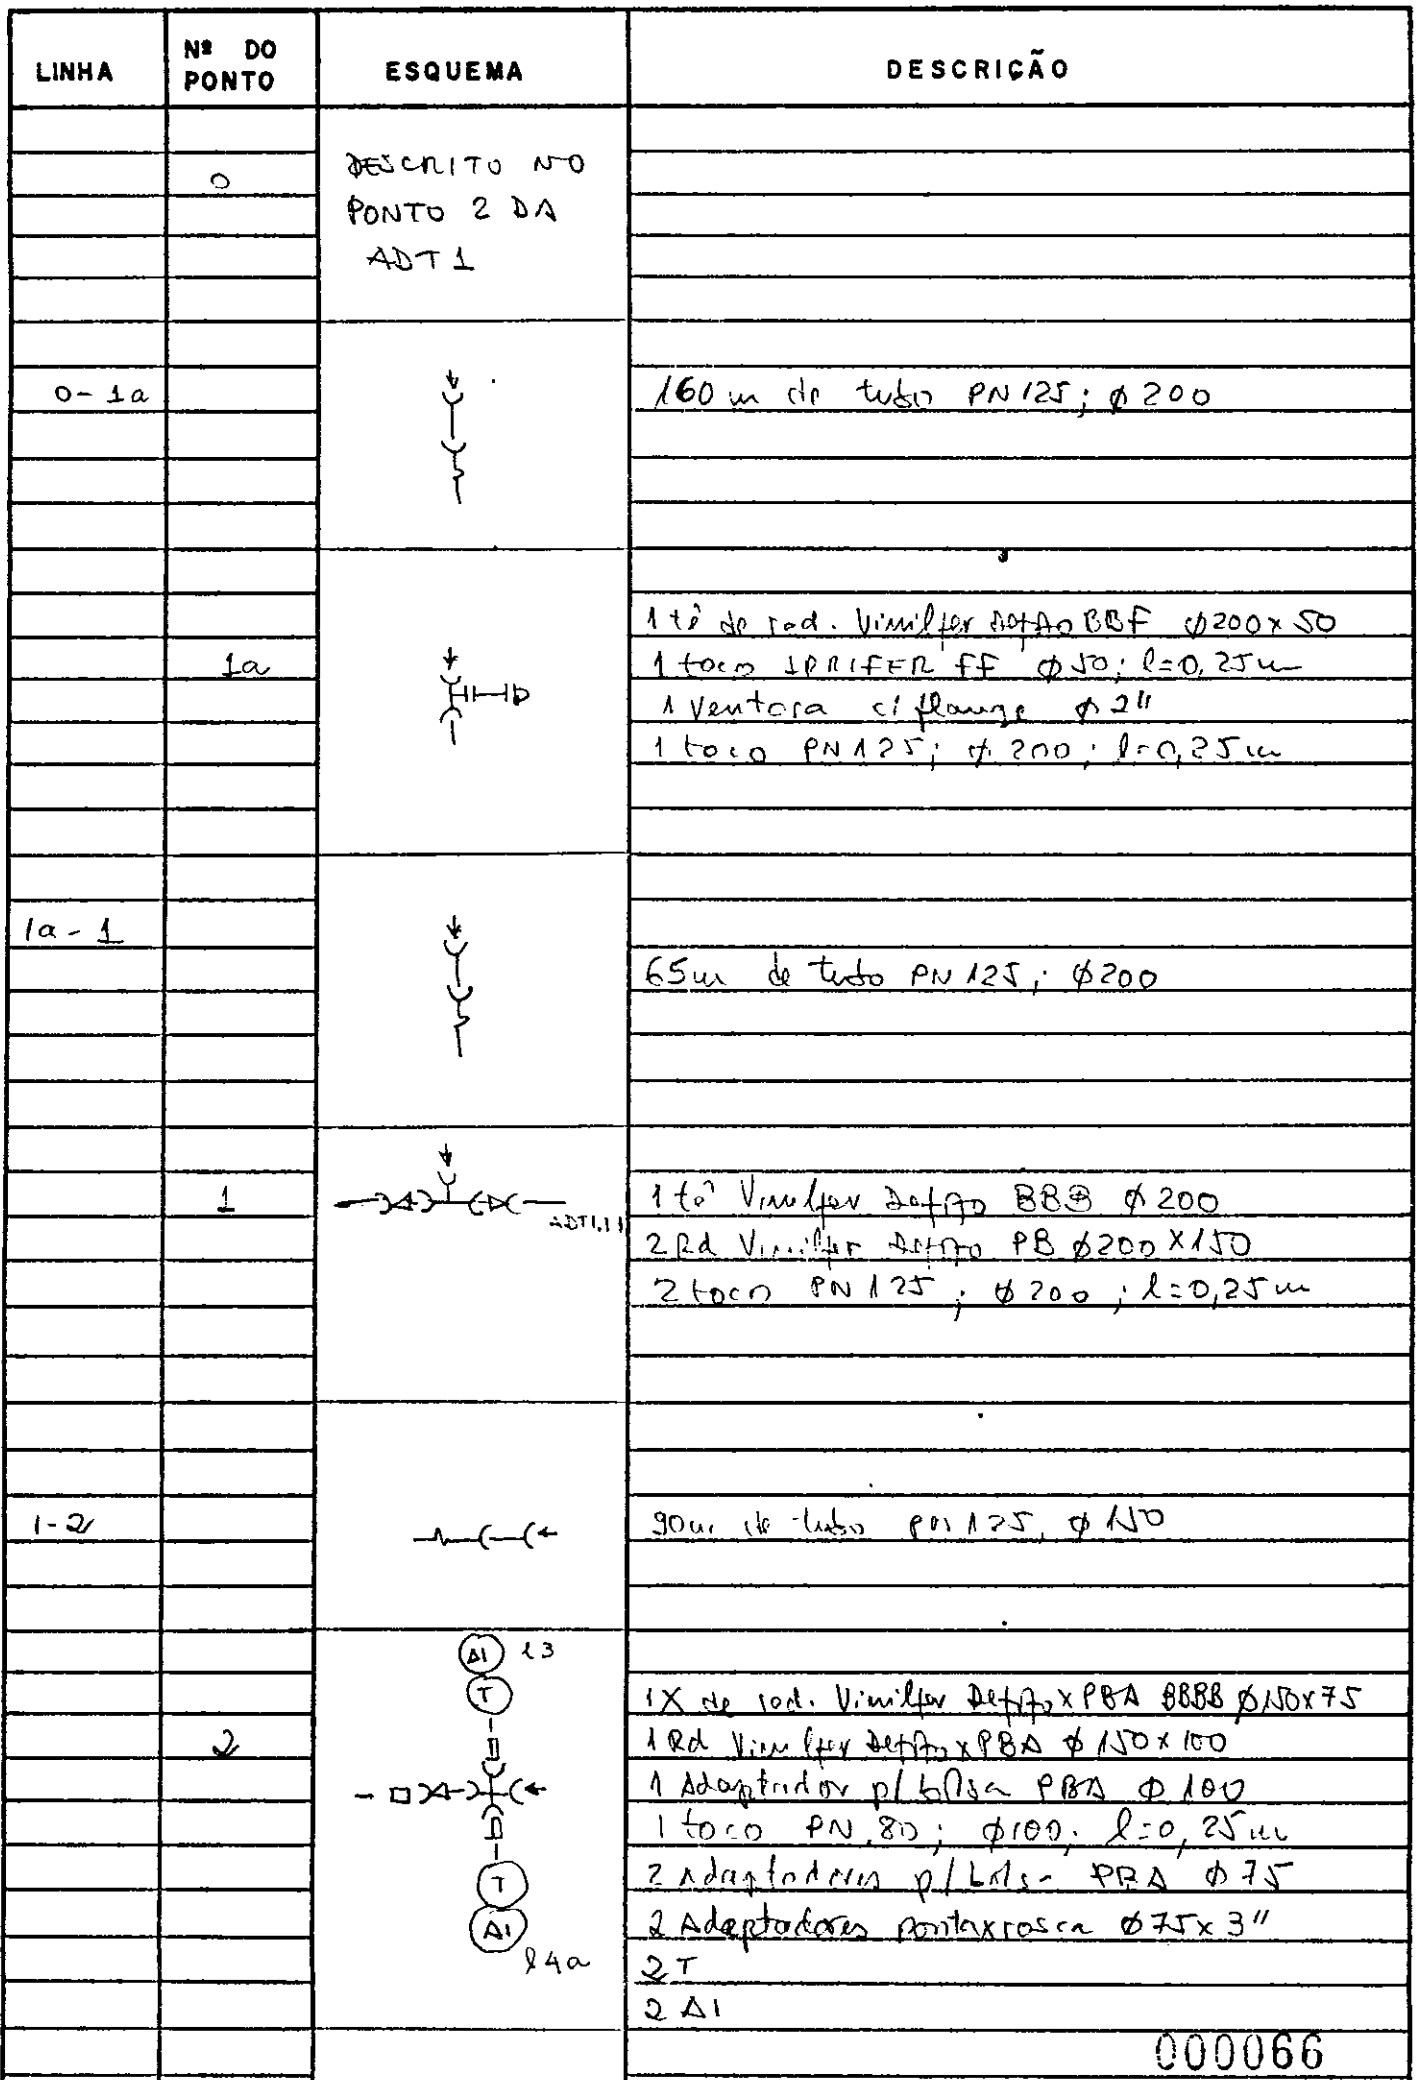 LINHA
Nº DO PONTO
ESQUEMA
DESCRIÇÃO
0
DESCRITO NO
PONTO 2 DA
ADT 1
0 - 1a
160 m de tubo PN 125; ϕ 200
1a
1 tê de red. Vinilfer Defofo BBF ϕ200 x 50
1 toco IRRIFER FF ϕ 50; l=0,25m
1 Ventosa c/ flange ϕ 2"
1 toco PN 125; ϕ 200; l=0,25m
1a - 1
65m de tubo PN 125; ϕ200
1
ADT1.11
1 tê Vinilfer Defofo BBB ϕ 200
2 Rd Vinilfer Defofo PB ϕ200 X 150
2 toco PN 125; ϕ 200; l=0,25m
1-2
90m de tubo PN 125, ϕ 150
A1 l3
T
2
T
A1
l4a
1X de red. Vinilfer Defofo x PBA BBBB ϕ150x75
1 Rd Vinilfer Defofo x PBA ϕ 150 x 100
1 Adaptador p/ bolsa PBA ϕ 100
1 toco PN 80; ϕ100; l=0,25m
2 Adaptadores p/ bolsa PBA ϕ 75
2 Adaptadores pontaxrosca ϕ75x3"
2 T
2 A1
000066